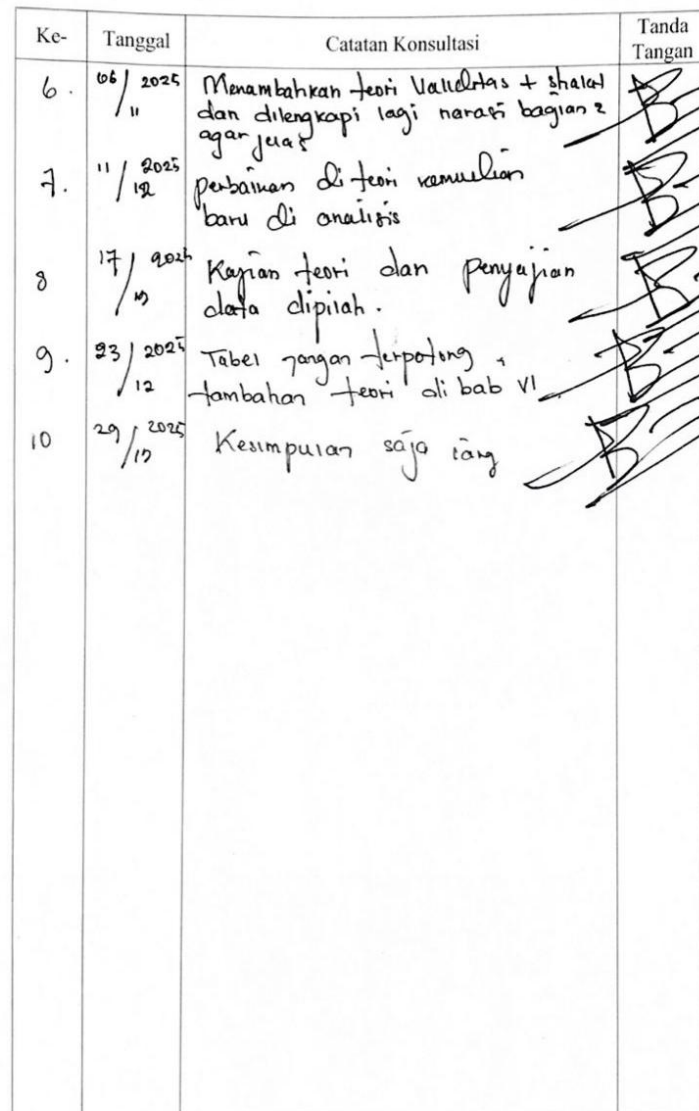 Ke- Tanggal Catatan Konsultasi Tanda Tangan
6. 06/11 2025 Menambahkan teori Validitas +
dan dilengkapi lagi narasi bagian2
agar jelas
7. 11/12 2025 perbaikan di teori kemudian
baru di analisis
8 17/12 2025 Kajian teori dan penyajian
data dipilah.
9. 23/12 2025 Tabel jangan terpotong,
tambahan teori di bab VI
10 29/12 2025 Kesimpulan saja